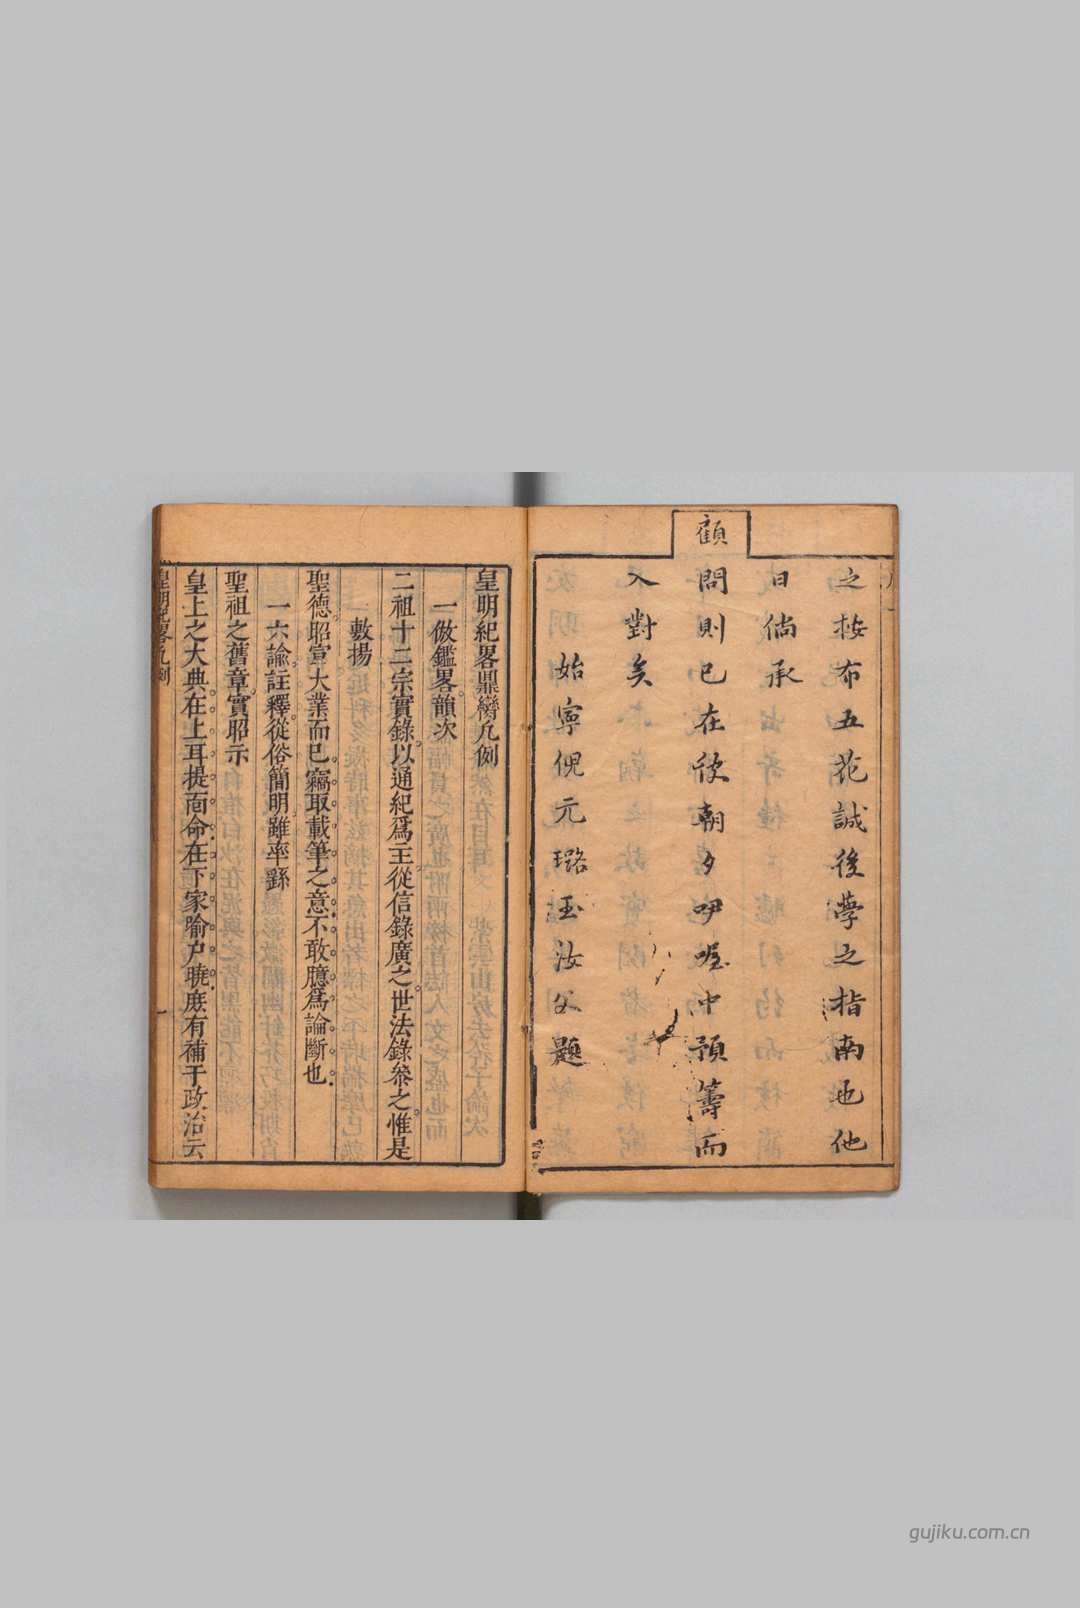 之按布五花誠後學之指南也他
日倘承
顧
問則已在欣朝夕吚喔中預籌而
入對矣
始寧倪元璐玉汝父題
皇明紀畧鼎臠凡例
一倣鑑畧韻次
二祖十二宗實錄以通紀爲主從信錄廣之世法錄叅之惟是
一敷揚
聖德昭宣大業而已竊取載筆之意不敢臆爲論斷也
一六諭註釋從俗簡明雖率繇
聖祖之舊章實昭示
皇上之大典在上耳提面命在下家喻户曉庻有補于政治云
皇明紀畧凡例
gujiku.com.cn